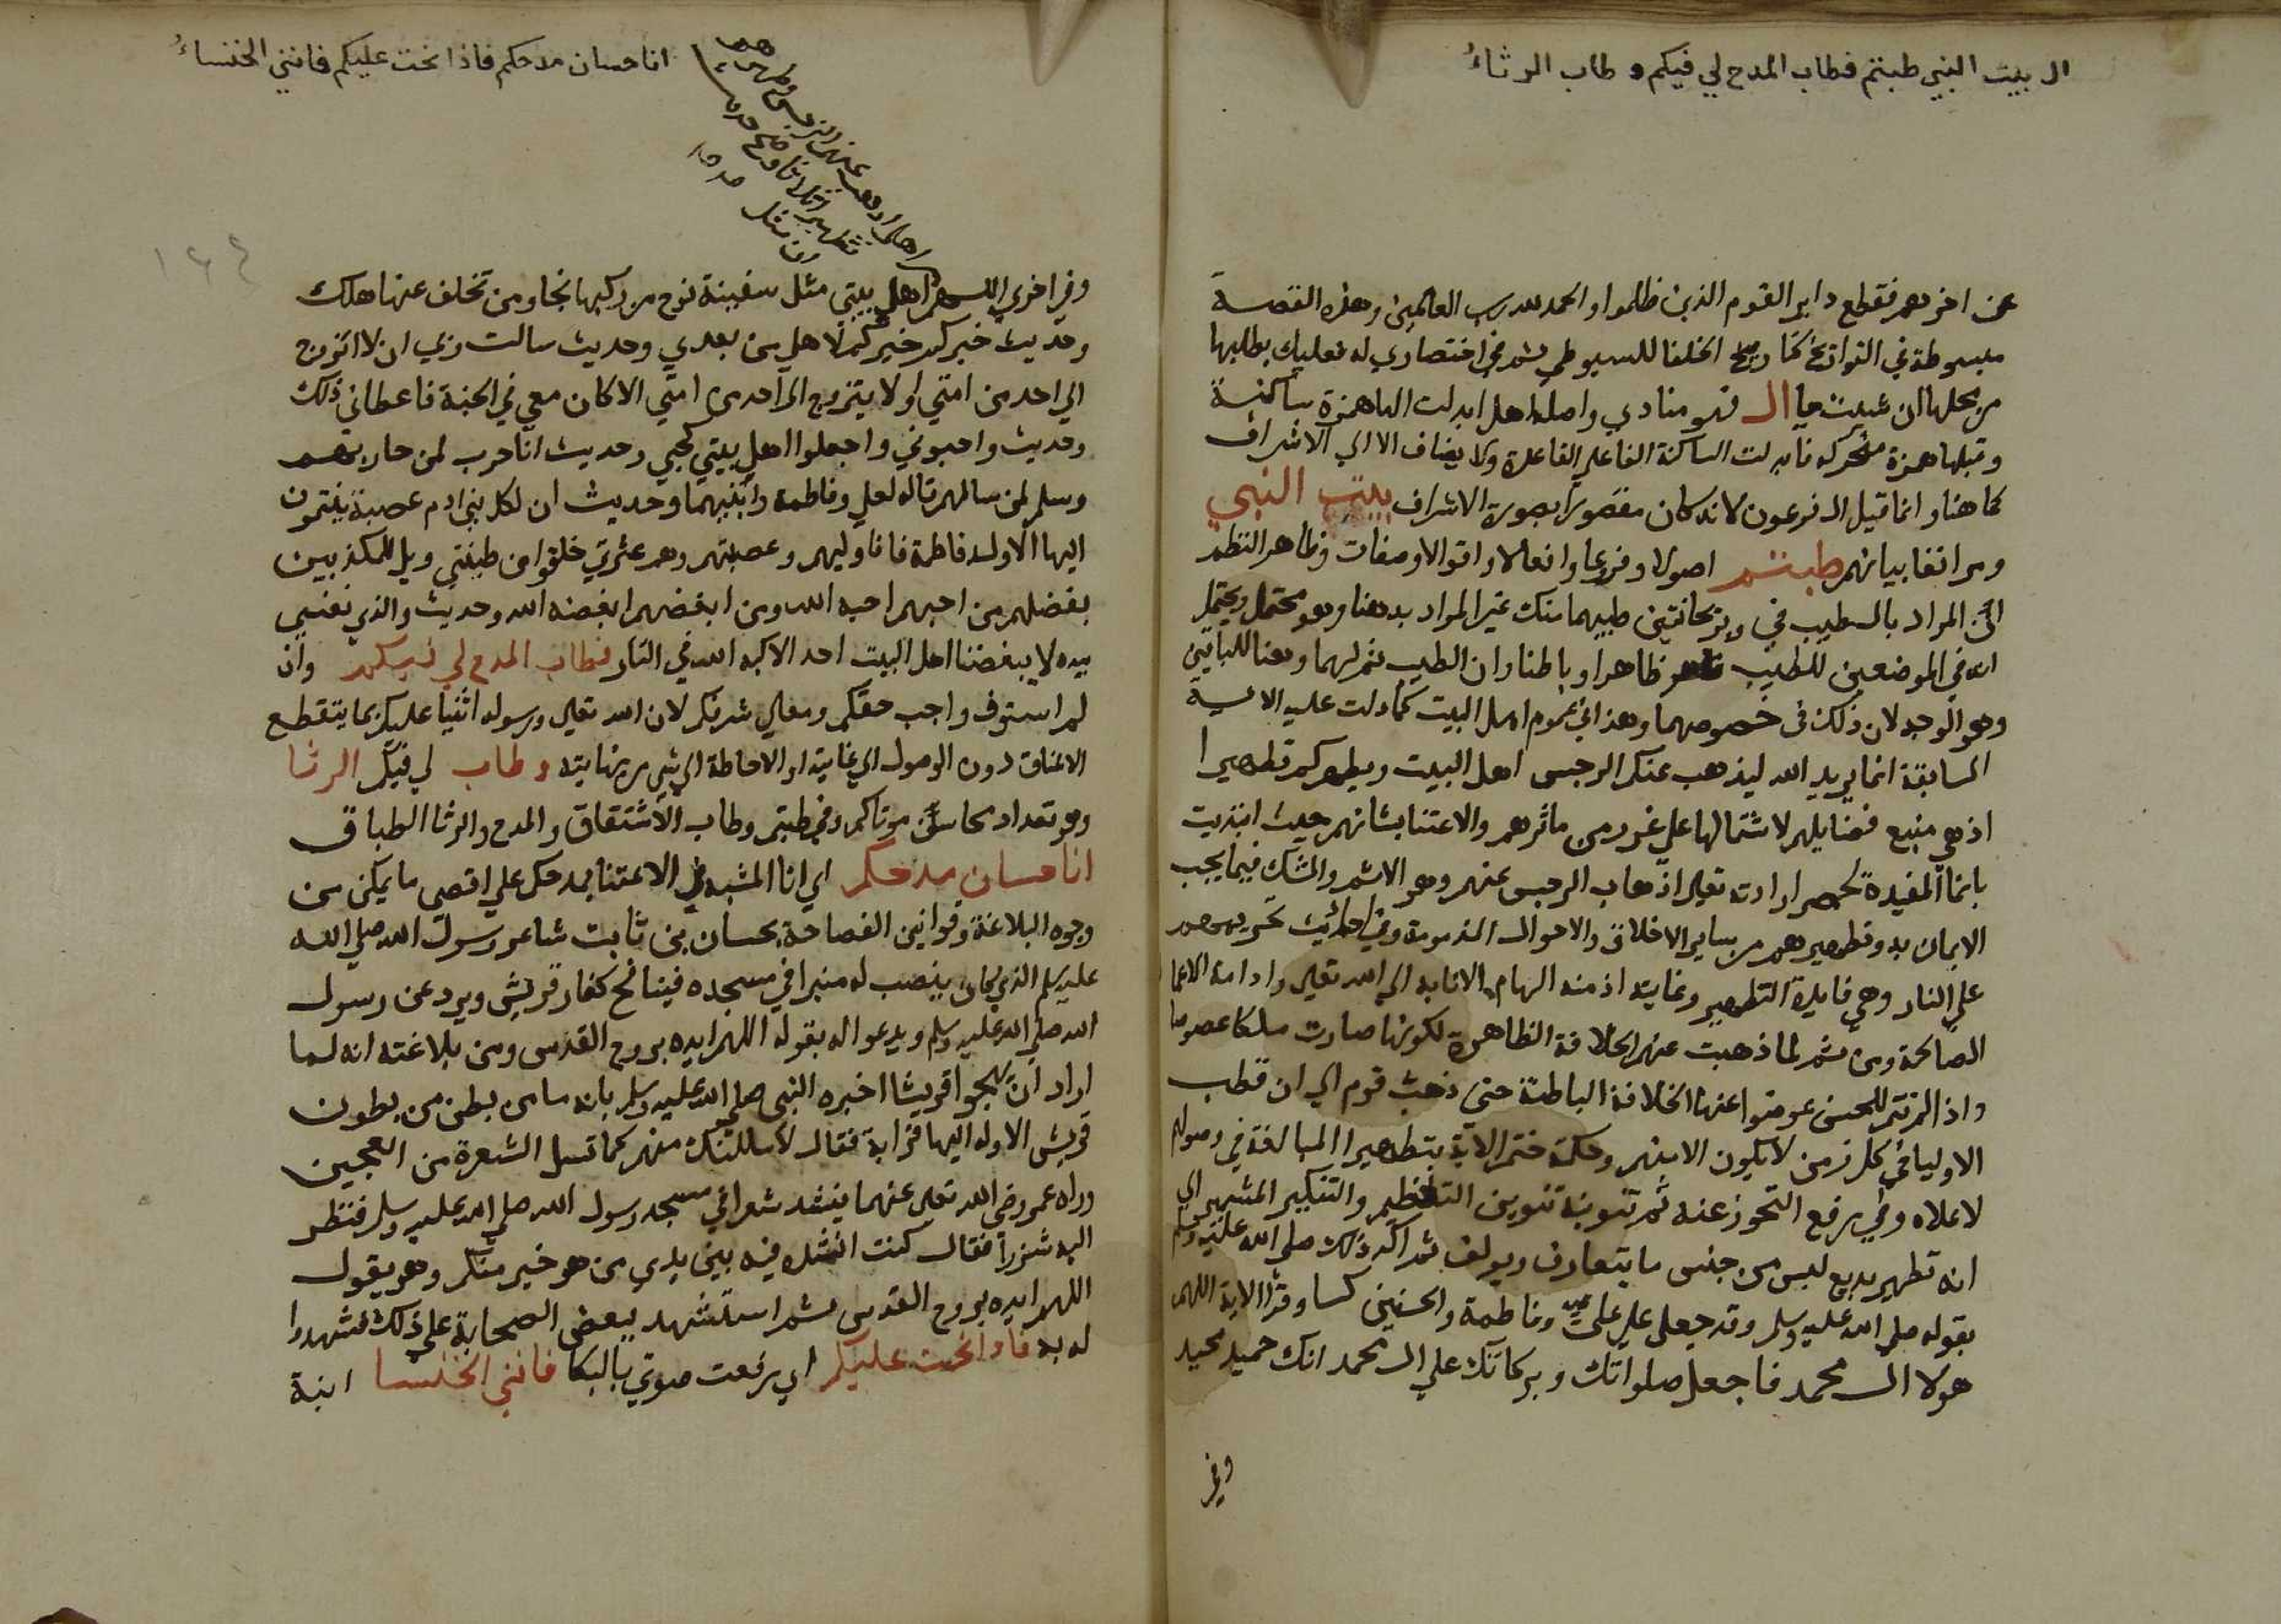 ال بيت النبي طبتم فطاب المدح لي فيكم وطاب الرثاءُ
عن اخرهم فقطع دابر القوم الذين ظلموا والحمد لله رب العالمين وهذه القصة
مبسوطة في التواريخ كتاريخ الخلفا للسيوطي ثم في اختصاري له فعليك بطلبها
من محلها ان شيت يا ال فهو منادي واصله اهل ابدلت الها همزة ساكنة
وقبلها همزة متحركه فابدلت الساكنة الفا علي القاعدة ولا يضاف الا الي الاشراف
كما هنا وانما قيل ال فرعون لانه كان مقصورا بصورة الاشراف بيت النبي
ومر انفا بيانهم طبتم اصولا وفروعا وافعالا واقوالا وصفات وظاهر النظم
ان المراد بالطيب في وبريحانتين طيبهما منك غير المراد به هنا وهو محتمل ويحتمل
انه في الموضعين للطيب ظاهرا وباطنا وان الطيب ثم لهما وهنا للباقين
وهو الوجه لان ذلك في خصوصهما وهذا في عموم اهل البيت كما دلت عليه الاية
السابقة انما يريد الله ليذهب عنكم الرجس اهل البيت ويطهركم تطهيرا
اذ هي منبع فضايلهم لاشتمالها علي غرر من ماثرهم والاعتنا بشانهم حيث ابتديت
بانما المفيدة لحصر ارادته تعلي اذهاب الرجس عنهم وهو الاثم والشك فيما يجب
الايمان به وتطهيرهم من ساير الاخلاق والاحوال المذمومة وفي احاديث تحريمهم
علي النار وهي فايدة التطهير وغايته اذ منه الهام الانابه الي الله تعلي وادامة الاعما
الصالحة ومن ثم لما ذهبت عنهم الخلافة الظاهرة لكونها صارت ملكا عضوضا
واذا لم تتم للحسن عوضوا عنها الخلافة الباطنة حتى ذهب قوم الي ان قطب
الاوليا في كل زمن لا يكون الا منهم وحكمة ختم الاية بتطهيرا المبالغة في وصولهم
لاعلاه وفي رفع التجوز عنه ثم تنوينه تنوين التعظيم والتكثير المشير الي
انه تطهير بديع ليس من جنس ما يتعارف ويولف ثم اكد ذلك صلي الله عليه وسلم
بقوله صلي الله عليه وسلم وقد جعل علي علي وفاطمة والحسنين كسا وقرا الاية اللهم
هولا ال محمد فاجعل صلواتك وبركاتك علي ال محمد انك حميد مجيد
وفي
انا حسان مدحكم فاذا نحت عليكم فانني الخنساءُ
١٤٤
وفي اخري اللهم اهل بيتي مثل سفينة نوح من ركبها نجا ومن تخلف عنها هلك
وحديث خيركم خيركم لاهلي من بعدي وحديث سالت ربي ان لا اتزوج
الي احد من امتي ولا يتزوج الي احد من امتي الا كان معي في الجنة فاعطاني ذلك
وحديث واحبوني واجعلوا اهل بيتي لحبي وحديث انا حرب لمن حاربهم
وسلم لمن سالمهم قاله لعلي وفاطمة وابنيهما وحديث ان لكل بني ادم عصبة ينتمون
اليها الا ولد فاطمة فانا وليهم وعصبتهم وهم عترتي خلقوا من طينتي ويل للمكذبين
بفضلهم من احبهم احبه الله ومن ابغضهم ابغضه الله وحديث والذي نفسي
بيده لا يبغضنا اهل البيت احد الا كبه الله في النار فطاب المدح لي فيكم وان
لم استوف واجب حقكم ومعالي شرفكم لان الله تعلي ورسوله اثنيا عليكم بما يتقطع
الاعناق دون الوصول الي غايته او الاحاطة الي شي من نهايته وطاب لي فيكم الرثا
وهو تعداد محاسن موتاكم وفي طبتم وطاب الاشتقاق والمدح والرثا الطباق
انا حسان مدحكم اي انا المشبه في الاعتنا بمدحكم علي اقصي ما يمكن من
وجوه البلاغة وقوانين الفصاحة بحسان بن ثابت شاعر رسول الله صلي الله
عليه وسلم الذي كان ينصب له منبرا في مسجده فينافح كفار قريش ويرد عن رسول
الله صلي الله عليه وسلم ويدعو اله بقوله اللهم ايده بروح القدس ومن بلاغته انه لما
اراد ان يهجو قريشا اخبره النبي صلي الله عليه وسلم بانه ما من بطن من بطون
قريش الا وله اليها قرابة فقال لاسلنك منهم كما تسل الشعرة من العجين
وراه عمر رضي الله تعلي عنهما ينشد شعرا في مسجد رسول الله صلي الله عليه وسلم فنظر
اليه شزراً فقال كنت انشد فيه بين يدي من هو خير منك وهو يقول
اللهم ايده بروح القدس ثم استشهد ببعض الصحابة علي ذلك فشهدوا
له به فاذا نحت عليكم اي رفعت صوتي بالبكا فانني الخنسا ابنة